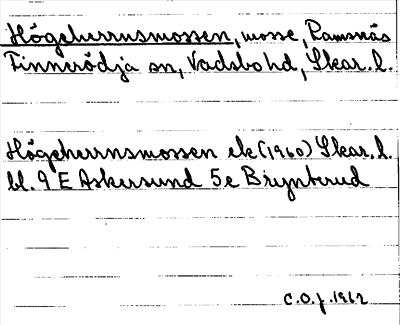 Högeherrnsmossen, mosse, Ramsnäs
Finnerödja sn, Vadsbo hd, Skar. l.
Högeherrnsmossen ek (1960) Skar. l.
bl. 9 E Askersund 5e Brynterud
C.O.J. 1962